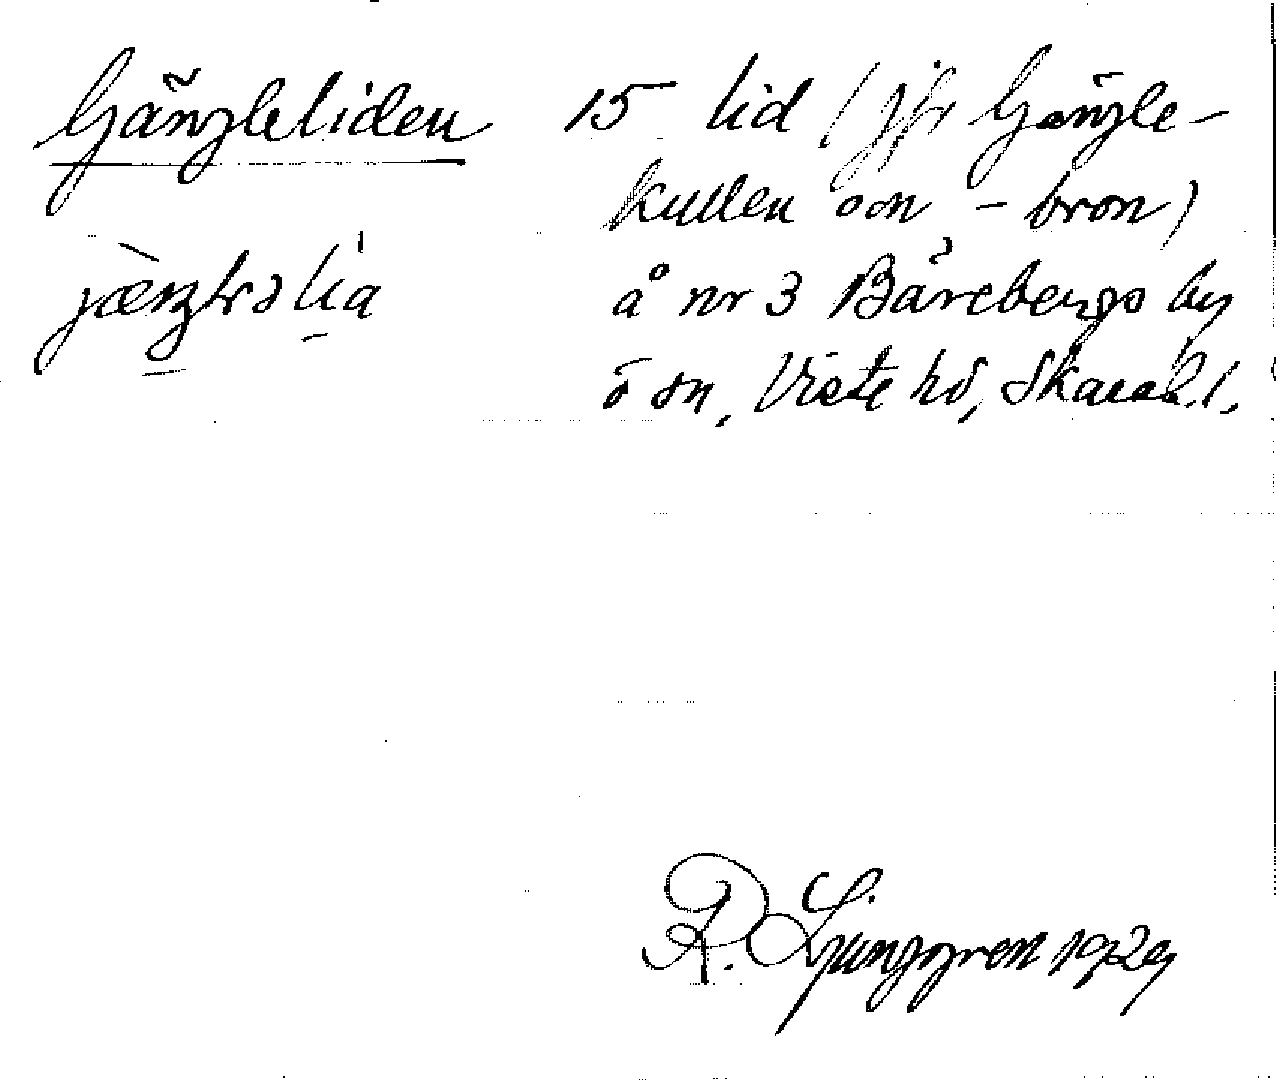 Gängleliden
15 lid (jfr Gängle-
kullen o on - bron)
å nr 3 Bärebergs by
o sn, Viste hd, Skarab. l.
R. Ljunggren 1929